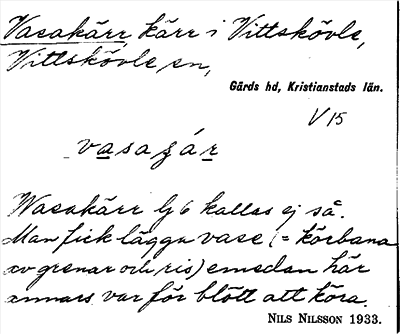 Vasakärr kärr i Vittskövle,
Vittskövle sn,
Gärds hd, Kristianstads län.
V 15
vasaʒár
Wasakärr Lj 6 kallas ej så.
Man fick lägga vase (= körbana
av grenar och ris) emedan här
annars var för blött att köra.
NILS NILSSON 1933.